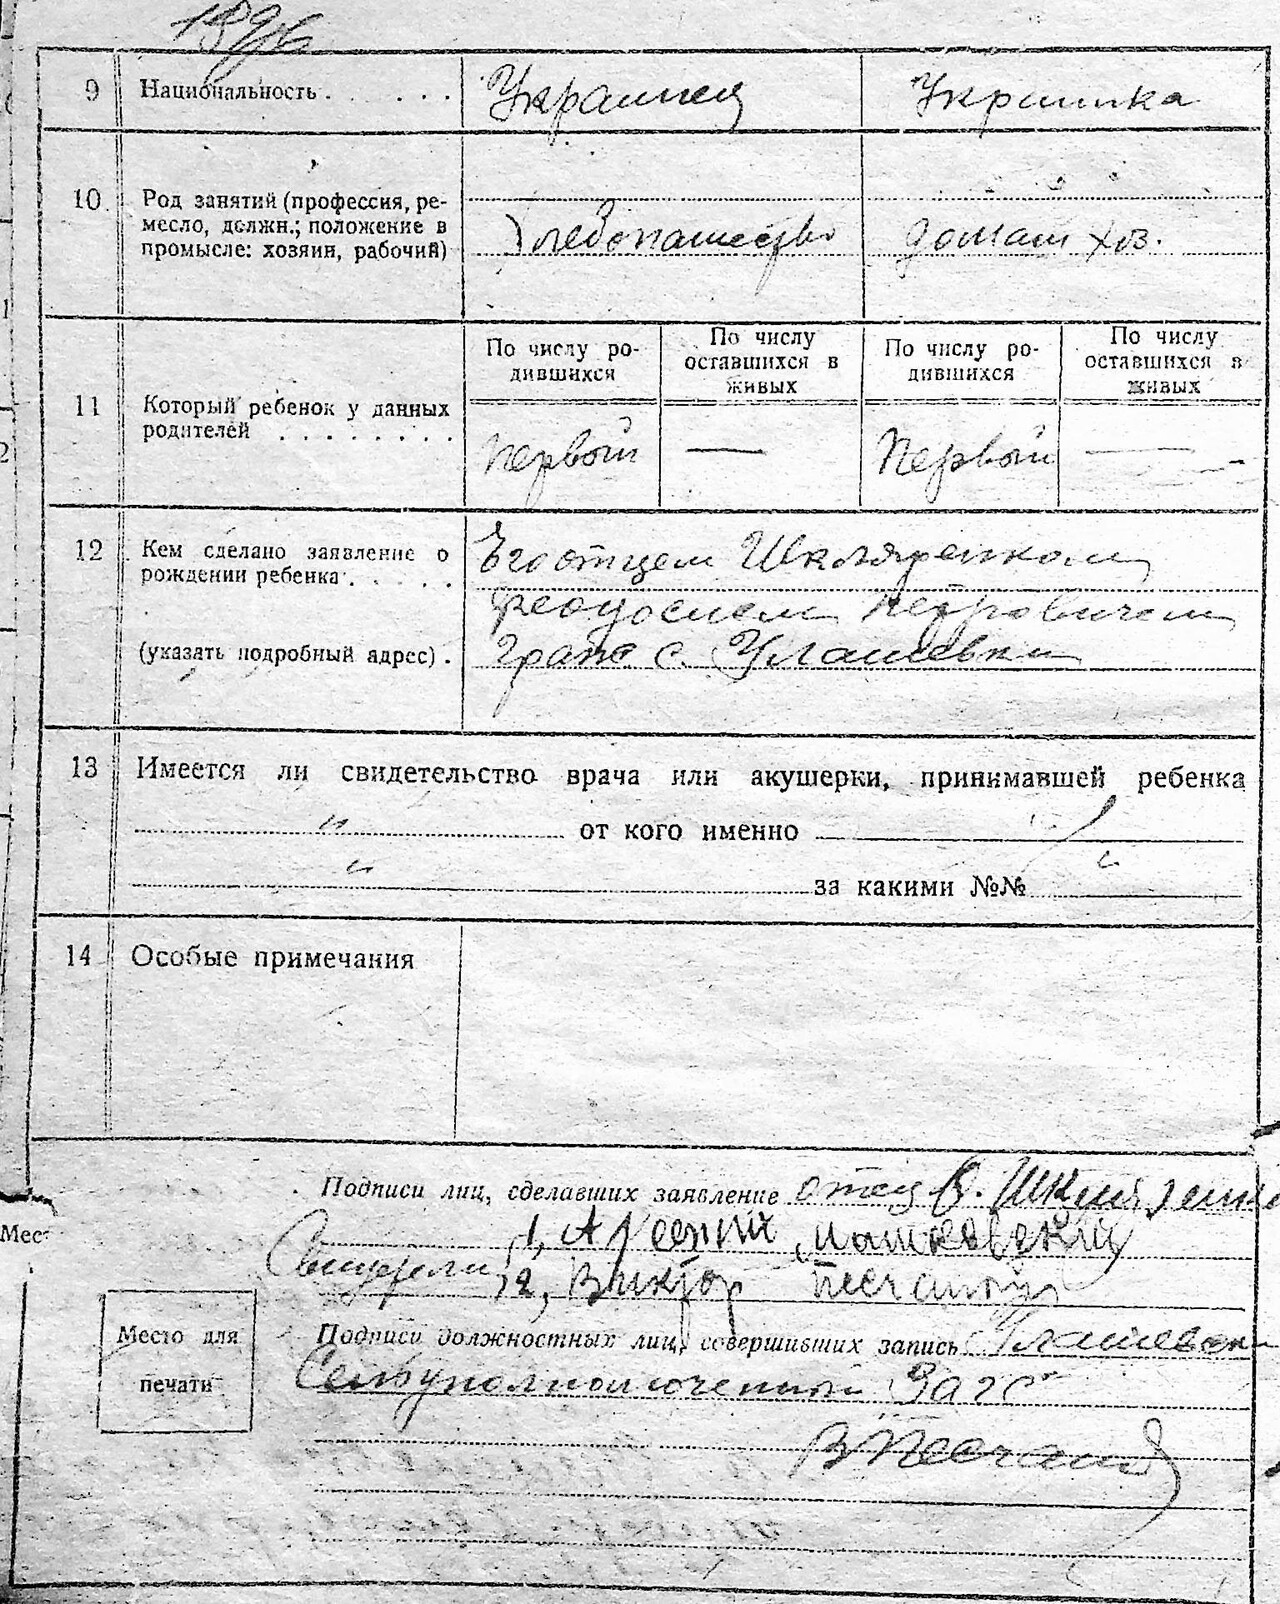 1896
9 Национальность . . . . . . Украинец Украинка
10 Род занятий (профессия, ре-
месло, должн.; положение в
промысле: хозяин, рабочий)
Хлебопашество домаш хоз.
11 Который ребенок у данных
родителей . . . . . . . .
По числу ро-
дившихся
По числу
оставшихся в
живых
По числу ро-
дившихся
По числу
оставшихся в
живых
первый — Первый —
12 Кем сделано заявление о
рождении ребенка . . . . .
(указать подробный адрес) .
Его отцем Шкляренком
Феодосием Петровичем
граж с. Улашевки
13 Имеется ли свидетельство врача или акушерки, принимавшей ребенка
" от кого именно
" за какими №№ "
14 Особые примечания
Подписи лиц, сделавших заявление отец Шкляренко
1, Арсений Машковский
Свидетели 2, Виктор Песчаный
Подписи должностных лиц, совершивших запись Улашевски
Сельуполномоченный Загс
В Песчаный
Место для
печати
Мес